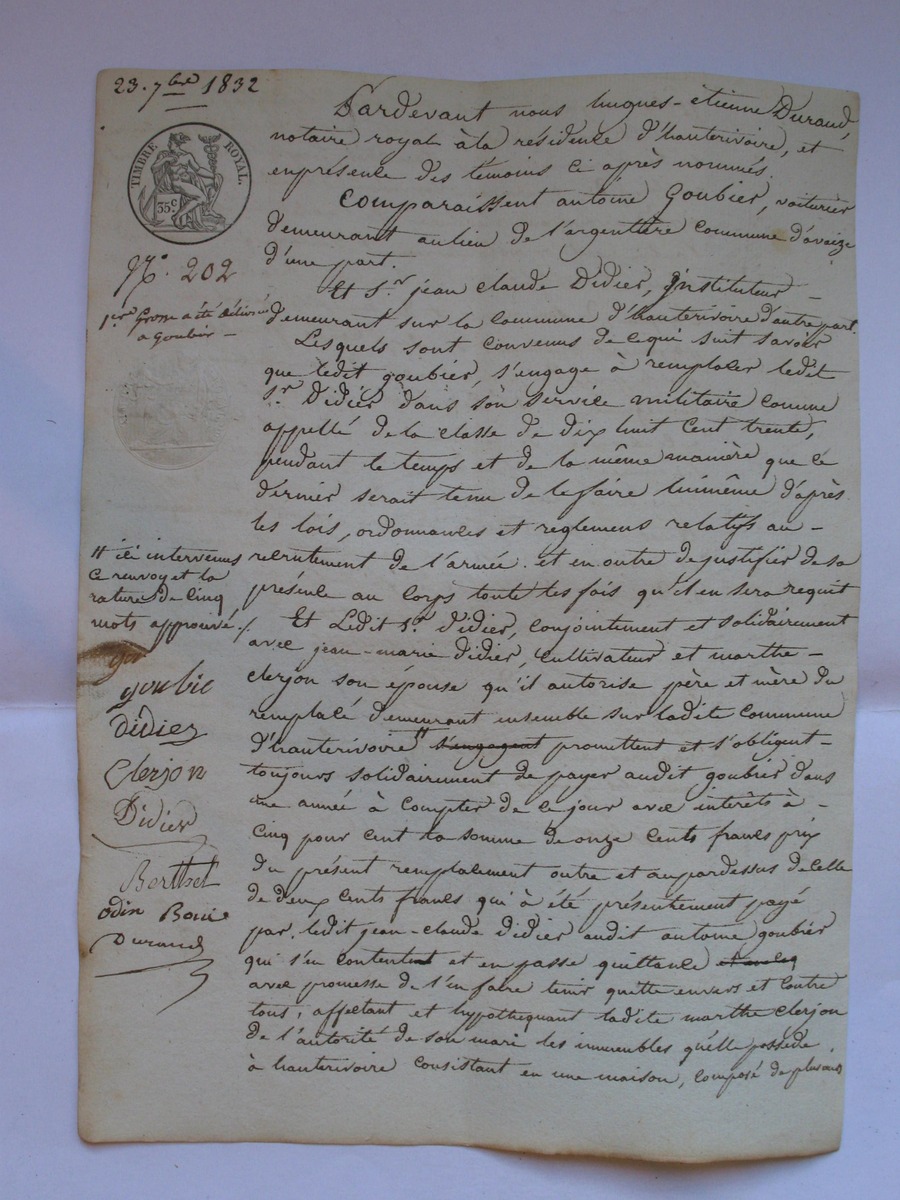 23. 7bre 1832
TIMBRE ROYAL.
35c
No. 202
1ere Grosse a été délivrée
a Goubier —
Pardevant nous hugues-étienne Durand,
notaire royal à la résidence d'hauterivoire, et
en présence des témoins ci après nommés.
Comparaissent antoine Goubier, voiturier
demeurant au lieu de l'argentière commune d'aveize
d'une part.
Et Sr jean claude Didier, Instituteur —
demeurant sur la commune d'hauterivoire d'autre part.
Lesquels sont convenus de ce qui suit savoir
que ledit goubier, s'engage à remplacer ledit
Sr Didier dans son service militaire comme
appellé de la classe de dix huit cent trente,
pendant le temps et de la même manière que ce
dernier serait tenu de le faire lui même d'après
les lois, ordonnances et reglemens relatifs au —
recrutement de l'armée. et en outre de justifier de sa
présence au corps toute les fois qu'il en sera requit
Et Ledit Sr Didier, conjointement et solidairement
avec jean-marie Didier, cultivateur et marthe —
clerjon son épouse qu'il autorise père et mère du
remplacé demeurant ensemble sur ladite commune
d'hauterivoire # s'engagent promettent et s'obligent —
toujours solidairement de payer audit goubier dans
une année à compter de ce jour avec interêts à —
cinq pour cent la somme de onze cents francs prix
du présent remplacement outre et au pardessus de celle
de deux cents francs qui à été présentement payé
par ledit jean-claude Didier audit antoine goubier
qui s'en content et en passe quittance
avec promesse de l'en faire tenir quitte envers et contre
tous; affectant et hypothequant ladite marthe clerjon
de l'autorité de son mari les immeubles qu'elle possède
à hauterivoire consistant en une maison, composé de plusieurs
# ici intervenus
ce renvoy et la
rature de cinq
mots approuvé ./.
goubie
didier
Clerjon
Didier
Berthet
odin Boui
Durand